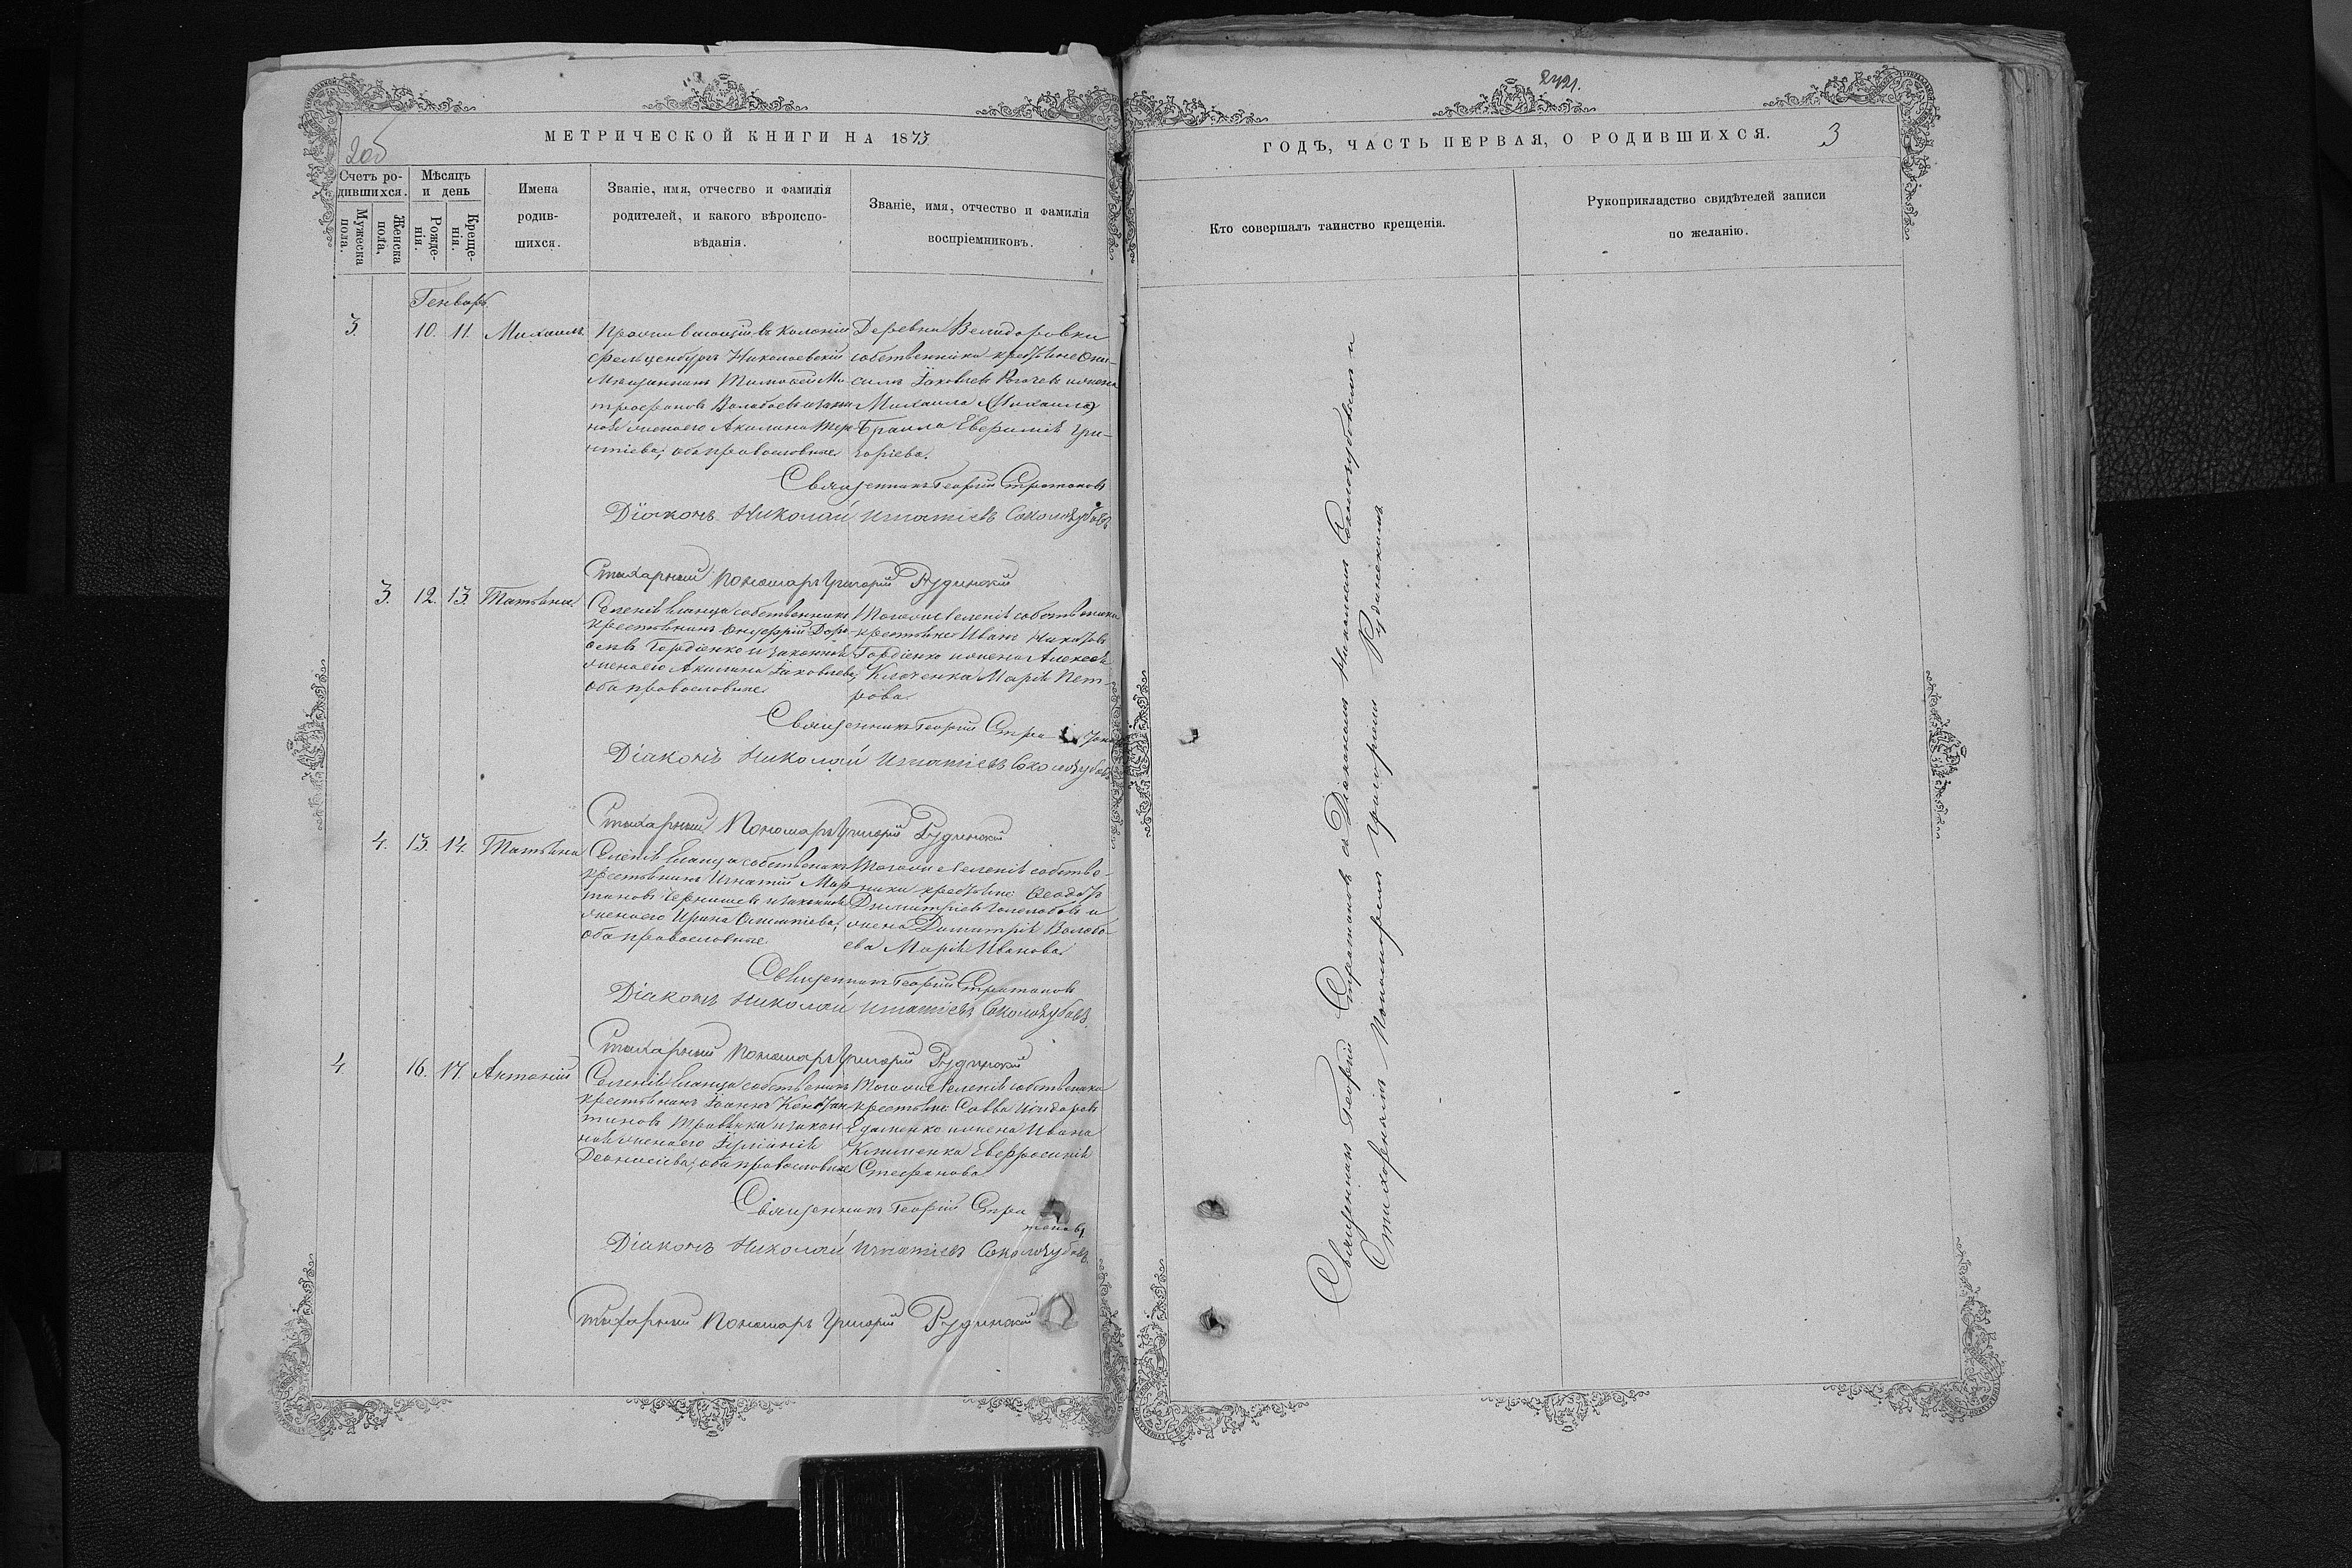 2об
МЕТРИЧЕСКОЙ КНИГИ НА 1875
Счетъ ро-
дившихся.
Мужеска
пола.
Женска
пола.
Мѣсяцъ
и день
Рожде-
нія.
Креще-
нія.
Имена
родив-
шихся.
Званіе, имя, отчество и фамилія
родителей, и какого вѣроиспо-
вѣданія.
Званіе, имя, отчество и фамилія
воспріемниковъ.
Генварь.
3. 10. 11. Михаилъ
Проживающій въ колоніи
Николаевскій
Мѣщанинъ Тимофей Ми-
трофановъ Валабаевъ и закон-
ная жена его Акилина Тер-
ентіева; оба православные
Деревни Велидоровки
собственники крестьяне Они-
симъ Іаковлевъ Рогачевъ и жена
Михаила (Михаила)
Евфимія Гри-
горіева.
Священникъ Георгій Стратановъ
Діаконъ Николай Игнатіевъ Соколозубовъ
Стихарный Пономарь Григорій Рудинскій
3. 12. 13. Татьяна.
Селенія Еланца собственникъ
крестьянинъ Онуфрій Доро-
ѳеевъ Гордіенко и законная
жена его Акилина Іаковлева;
оба православные
Того же селенія собственники
крестьяне: Иванъ
Гордіенко и жена Алексея
Клоченка Марія Пет-
рова.
Священникъ Георгій Стратановъ
Діаконъ Николай Игнатіевъ Соколозубовъ
Стихарный Пономарь Григорій Рудинскій
4. 13. 14. Татьяна
Селенія Еланца собственникъ
крестьянинъ Игнатій Мар-
тиновъ Чернышевъ и законная
жена его Ирина;
оба православные
Того же селенія собстве-
нники крестьяне: Ѳеодотъ
Димитріевъ и
жена Димитрія Валаба-
ева Марія Иванова.
Священникъ Георгій Стратановъ
Діаконъ Николай Игнатіевъ Соколозубовъ
Стихарный Пономарь Григорій Рудинскій
4. 16. 17. Антоній
Селенія Еланца собственникъ
крестьянинъ Іоаннъ Констан-
тиновъ и закон-
ная жена его Іуліанія
Деонисіева; оба православные
Того же селенія собственники
крестьяне: Савва Исидоровъ
и жена Ивана
Евфросинія
Стефанова
Священникъ Георгій Стра
тановъ
Діаконъ Николай Игнатіевъ Соколозубовъ
Стихарный Пономарь Григорій Рудинскій
2421.
ГОДЪ, ЧАСТЬ ПЕРВАЯ, О РОДИВШИХСЯ.
3
Кто совершалъ таинство крещенія.
Рукоприкладство свидѣтелей записи
по желанію.
Священникъ Георгій Стратановъ съ Діакономъ Николаемъ Соколозубовымъ и
Стихарнымъ Пономаремъ Григоріемъ Рудинскимъ